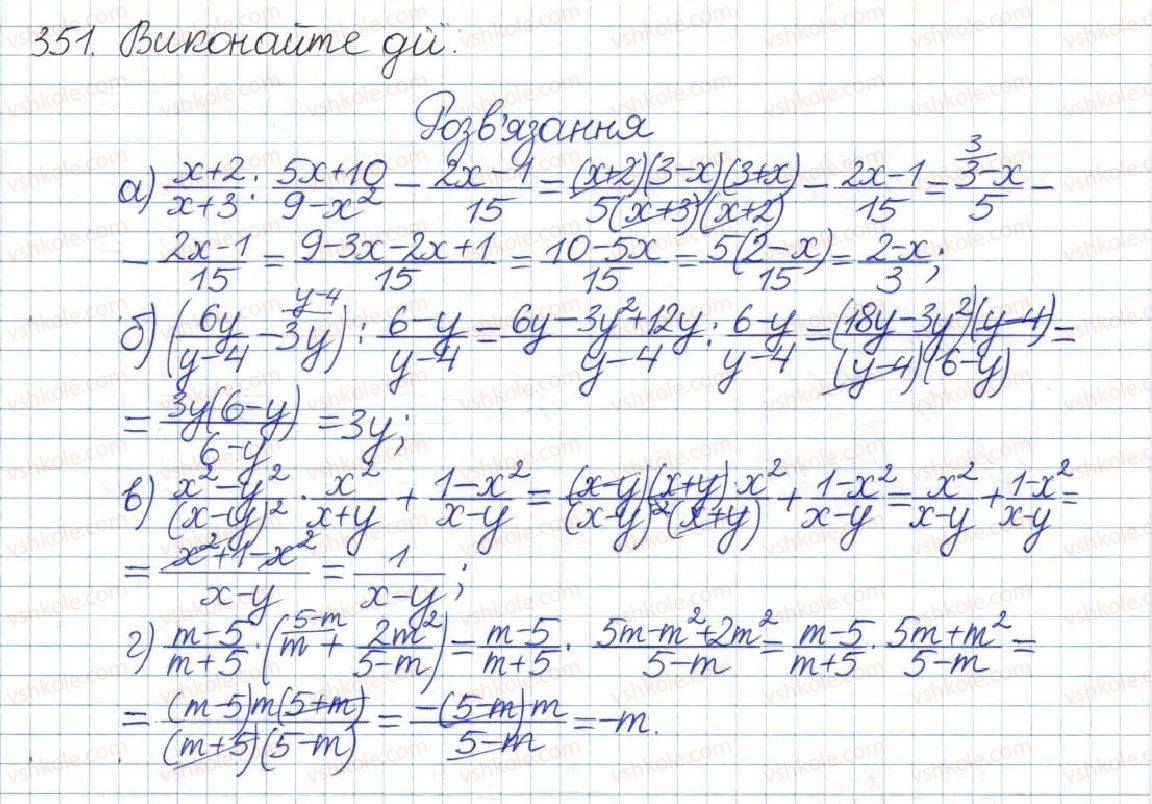 351. Виконайте дії.
Розв'язання
а) \frac{x+2}{x+3} : \frac{5x+10}{9-x^2} - \frac{2x-1}{15} = \frac{(x+2)(3-x)(3+x)}{5(x+3)(x+2)} - \frac{2x-1}{15} = \frac{\overset{3}{\overline{3-x}}}{5} -
- \frac{2x-1}{15} = \frac{9-3x-2x+1}{15} = \frac{10-5x}{15} = \frac{5(2-x)}{15} = \frac{2-x}{3};
б) (\frac{6y}{y-4} - \overset{y-4}{\overline{3y}}) : \frac{6-y}{y-4} = \frac{6y-3y^2+12y}{y-4} : \frac{6-y}{y-4} = \frac{(18y-3y^2)(y-4)}{(y-4)(6-y)} =
= \frac{3y(6-y)}{6-y} = 3y;
в) \frac{x^2-y^2}{(x-y)^2} \cdot \frac{x^2}{x+y} + \frac{1-x^2}{x-y} = \frac{(x-y)(x+y) \cdot x^2}{(x-y)^2(x+y)} + \frac{1-x^2}{x-y} = \frac{x^2}{x-y} + \frac{1-x^2}{x-y} =
= \frac{x^2+1-x^2}{x-y} = \frac{1}{x-y};
г) \frac{m-5}{m+5} \cdot (\overset{5-m}{\overline{m}} + \frac{2m^2}{5-m}) = \frac{m-5}{m+5} \cdot \frac{5m-m^2+2m^2}{5-m} = \frac{m-5}{m+5} \cdot \frac{5m+m^2}{5-m} =
= \frac{(m-5)m(5+m)}{(m+5)(5-m)} = \frac{-(5-m)m}{5-m} = -m.
vshkole.com